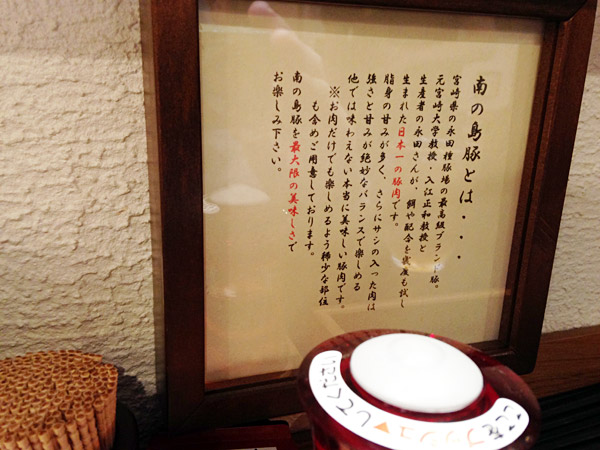 南の島豚とは・・・
宮崎県の永田種豚場の最高級ブランド豚。
元宮崎大学教授・入江正和教授と
生産者の永田さんが、餌や配合を幾度も試し
生まれた日本一の豚肉です。
脂身の甘みが多く、さらにサシの入った肉は
強さと甘みが絶妙なバランスで楽しめる
他では味わえない本当に美味しい豚肉です。
※お肉だけでも楽しめるよう稀少な部位
も含めご用意しております。
南の島豚を最大限の美味しさで
お楽しみ下さい。
ここをプッシュ▼してください